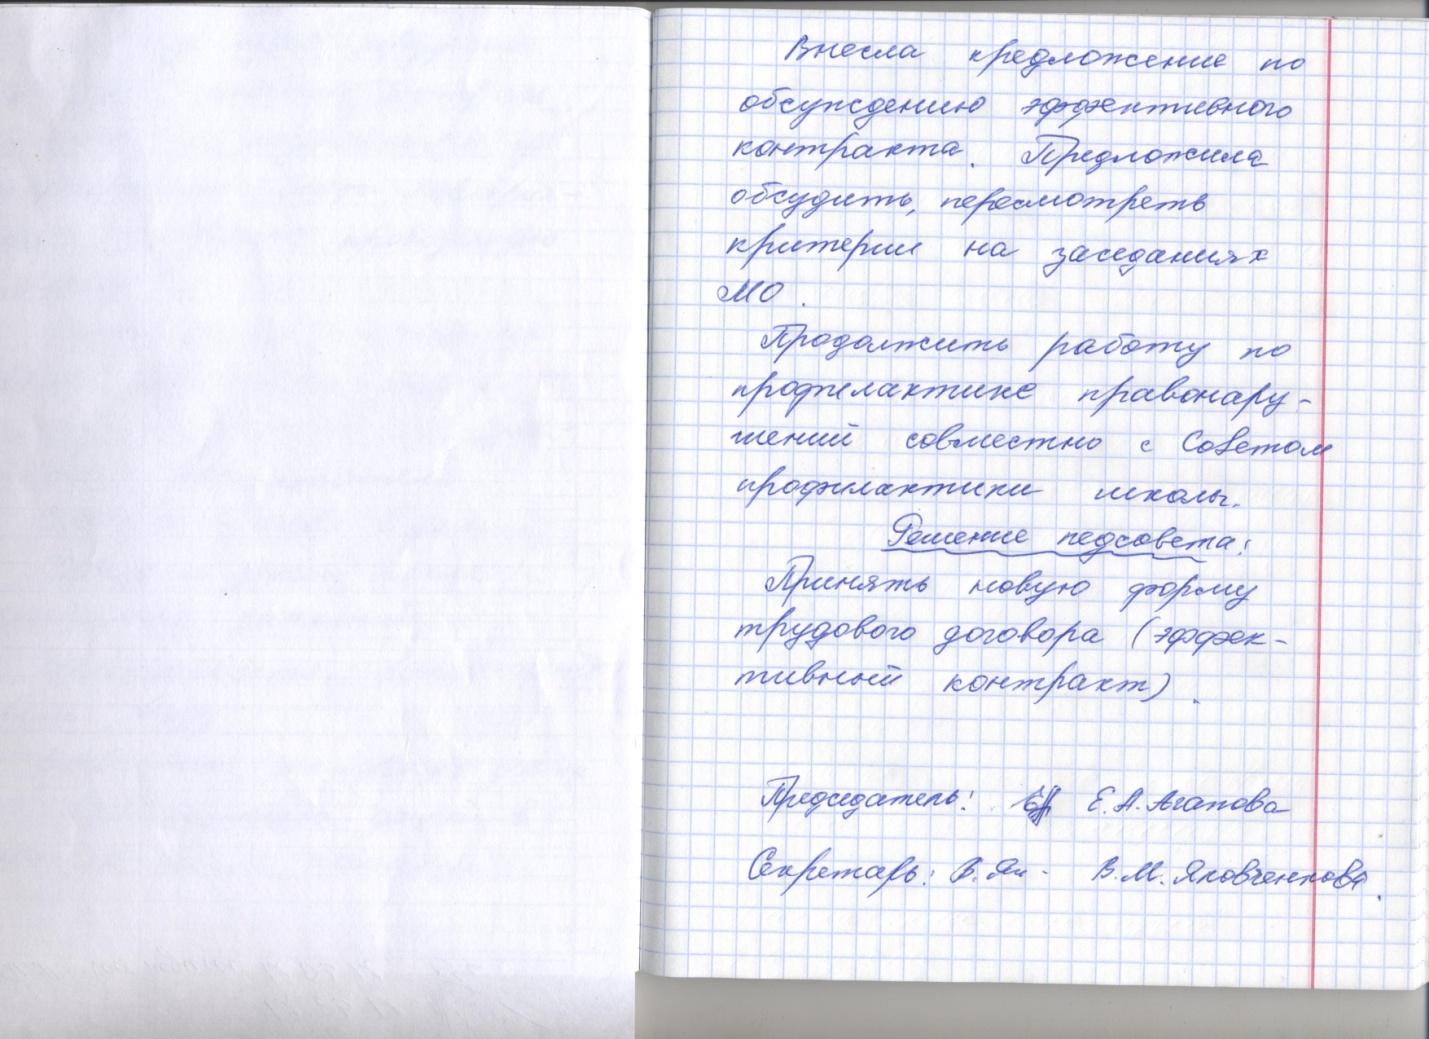 Внесла предложение по
обсуждению эффективного
контракта. Предложила
обсудить, пересмотреть
критерии на заседаниях
МО.
Продолжить работу по
профилактике правонару-
шений совместно с Советом
профилактики школы.
Решение педсовета:
Принять новую форму
трудового договора (эффек-
тивный контракт).
Председатель: Е.А. Агапова
Секретарь: В. Як- В.М. Яковченкова.